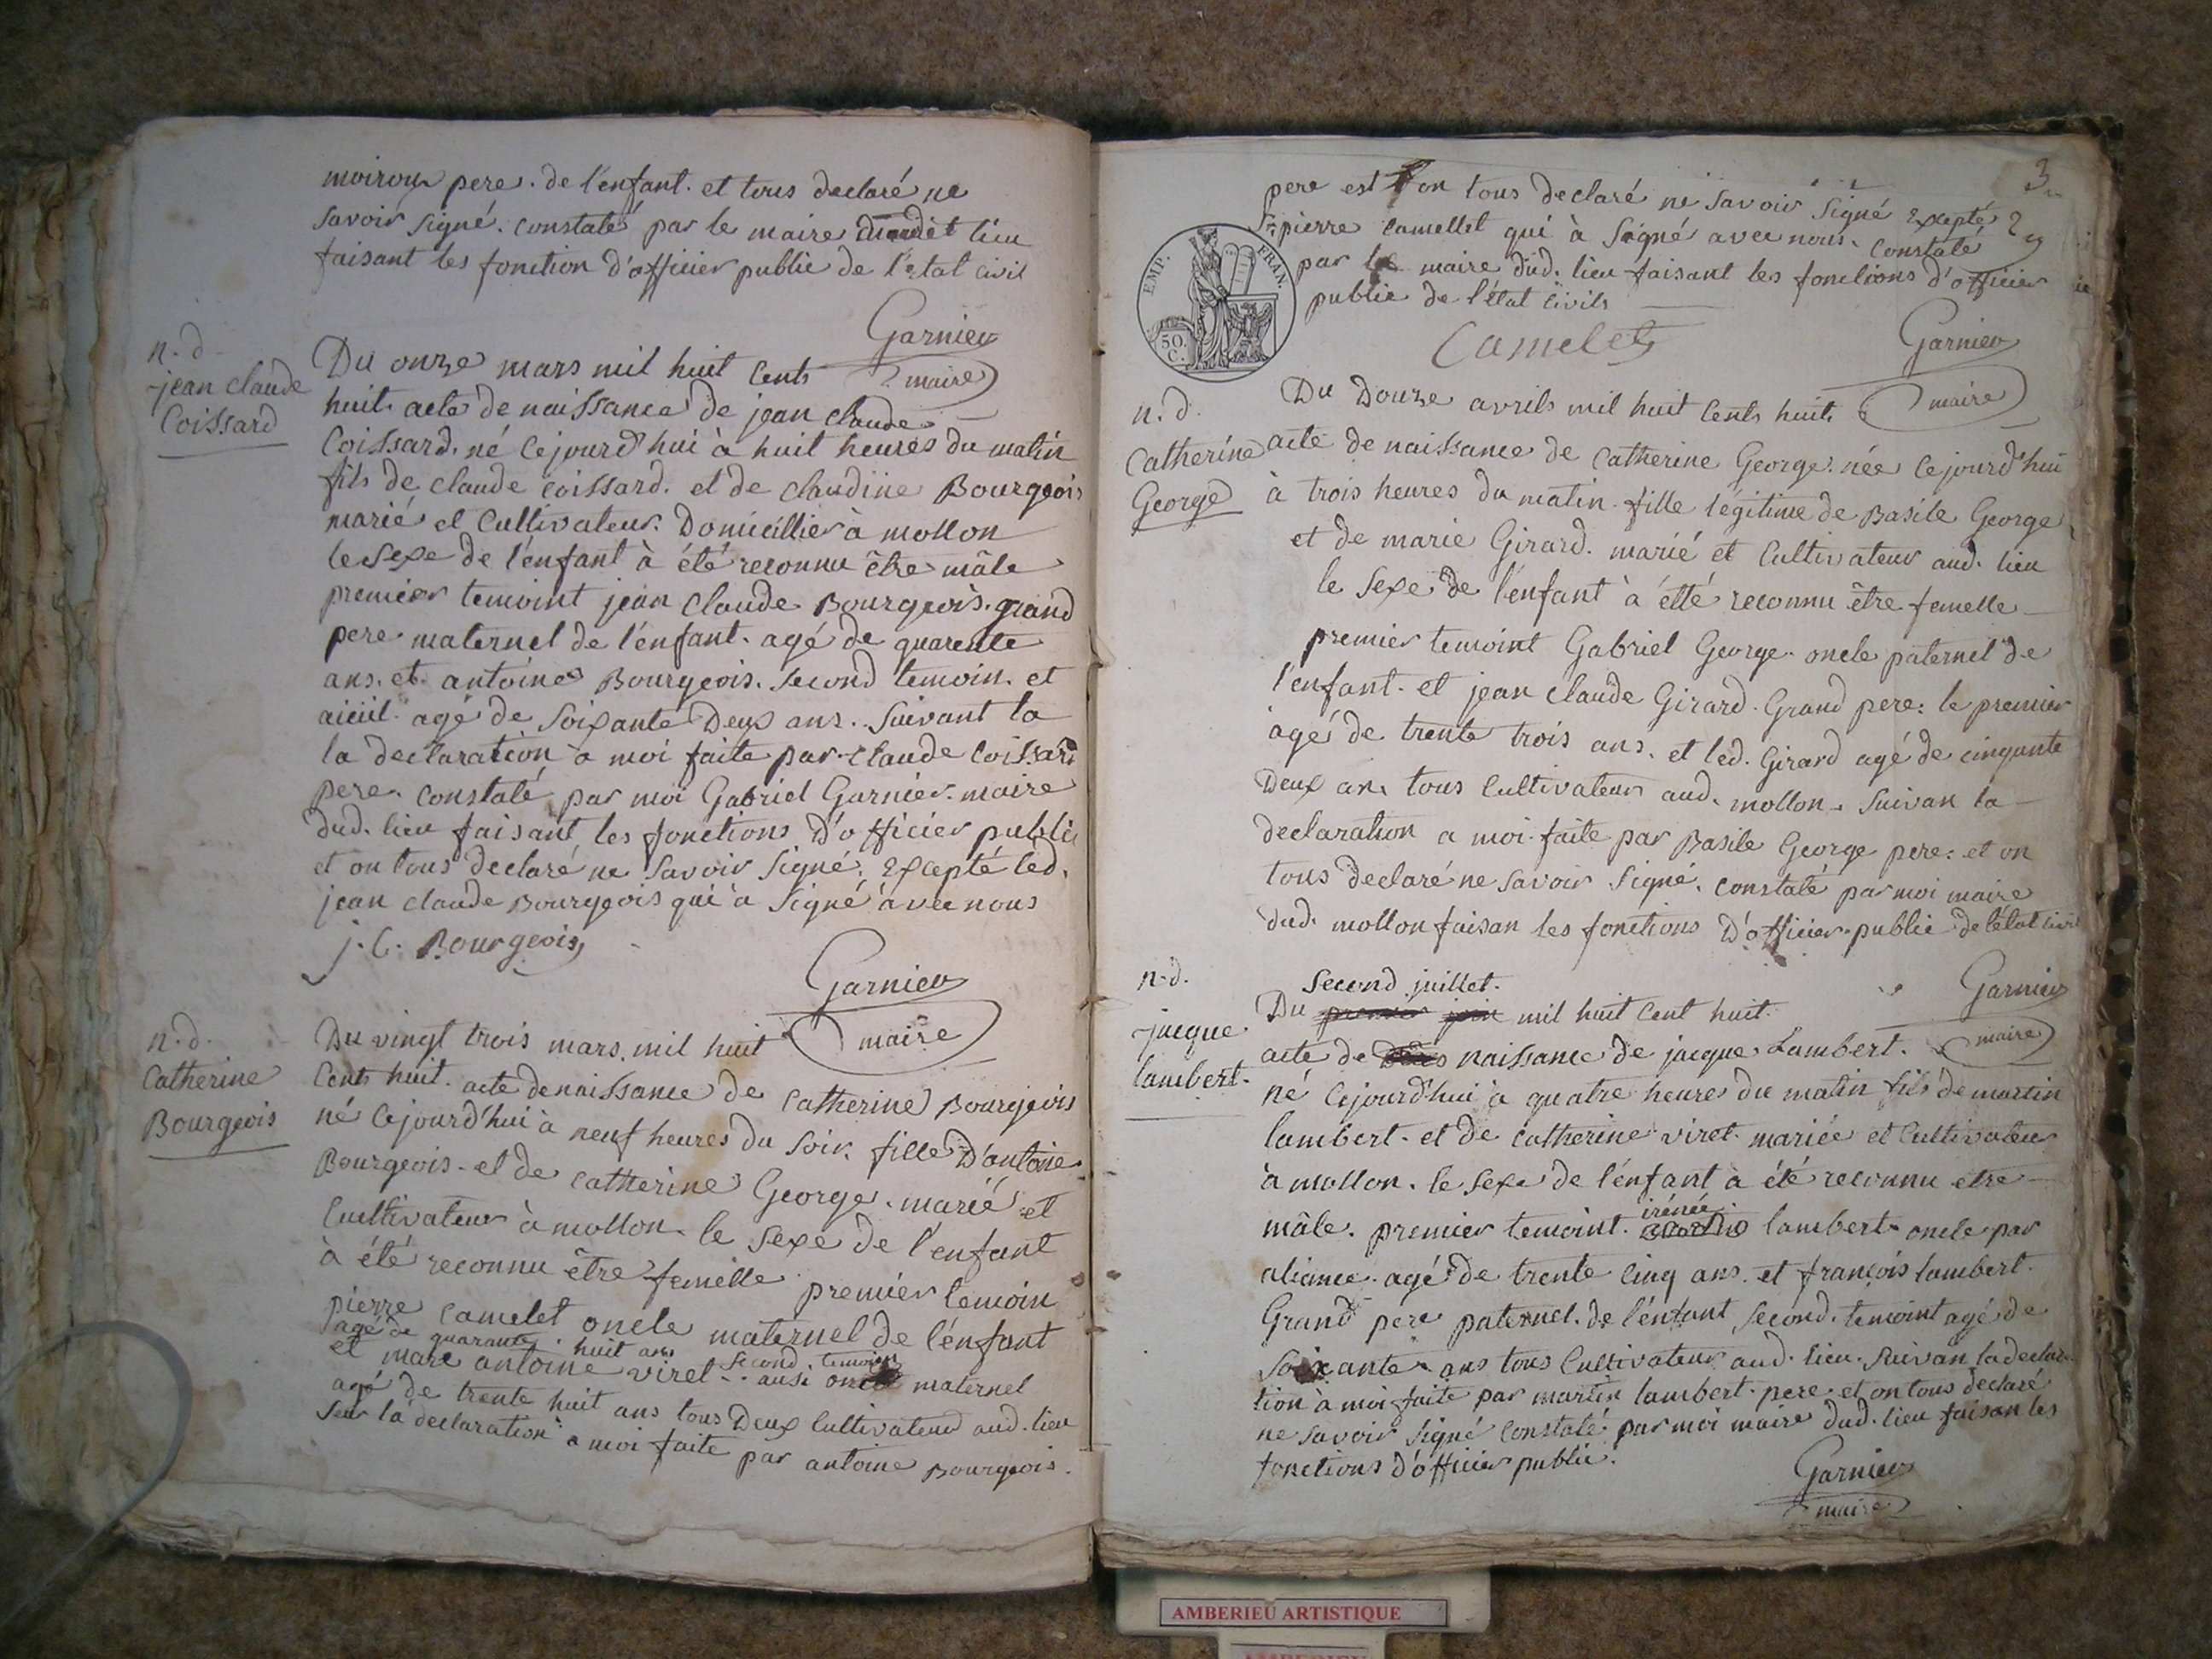 moiroux pere. de l'enfant. et tous declaré ne
savoir signé. constaté par le maire dudit lieu
faisant les fonction d'officier public de l'etat civil
Garnier
maire
n.d.
jean claude
Coissard
Du onze mars mil huit cents
huit. acte de naissance de jean claude
Coissard. né cejourd'hui à huit heures du matin
fils de claude coissard. et de claudine Bourgeois
marié et Cultivateur. Domicillier à mollon
le sexe de l'enfant à été reconnu être mâle
premier temoint jean claude Bourgeois. grand
pere maternel de l'enfant. agé de quarente
ans. et antoine Bourgeois. second temoin. et
aieül. agé de soixante Deux ans. suivant la
la declaration a moi faite par claude coissard
pere. constaté par moi Gabriel Garnier. maire
dud. lieu faisant les fonctions d'officier public
et on tous declaré ne savoir signé. Excepté led.
jean claude Bourgeois qui à signé avec nous
j. C. Bourgeois
Garnier
maire
n.d.
Catherine
Bourgeois
Du vingt trois mars. mil huit
Cents huit. acte denaissance de Catherine Bourgeois
né Cejourd'hui à neuf heures du soir. fille D'antoine
Bourgeois. et de catherine George. marié et
Cultivateur à mollon. le sexe de l'enfant
à été reconnu être femelle. premier temoin
pierre camelet oncle maternel de l'enfant
agé de quarante huit ans second temoin
et marc antoine viret aussi oncle maternel
agé de trente huit ans tous Deux Cultivateur aud. lieu
sur la declaration à moi faite par antoine Bourgeois.
3
pere est on tous declaré ne savoir signé Excepté
pierre camellet qui à signé avec nous. Constaté
par le maire dud. lieu faisant les fonctions d'officier
public de l'état civils
EMP. FRAN.
50.
C.
Camelet
Garnier
maire
n.d.
Catherine
George
Du Douze avrils mil huit Cents huit.
acte de naissance de catherine George. née Cejourd'hui
à trois heures du matin. fille légitime de Basile George
et de marie Girard. marié et Cultivateur aud. lieu
le sexe de l'enfant à été reconnu être femelle
premier temoint Gabriel George. oncle paternel de
l'enfant. et jean claude Girard. Grand pere: le premier
agé de trente trois ans. et led. Girard agé de cinqante
Deux an. tous Cultivateur aud. mollon. suivan la
declaration a moi faite par Basile George pere: et on
tous declaré ne savoir signé. constaté par moi maire
dud. mollon faisan les fonctions D'officier public de l'état civil
Garnier
maire
n.d.
jacque
lambert.
second juillet.
Du premier juin mil huit Cent huit.
acte de naissance de jacque Lambert.
né Cejourd'hui à quatre heures du matin fils de martin
lambert. et de catherine viret. mariée et Cultivateur
à mollon. le sexe de l'enfant à été reconnu etre
irénée
mâle. premier temoint. lambert oncle par
aliance. agé de trente cinq ans. et françois lambert.
Grand pere paternel. de l'enfant second. temoint agé de
soixante ans tous Cultivateur aud. lieu. suivan la declara
tion à moi faite par martin lambert. pere. et on tous declaré
ne savoir signé constaté par moi maire dud. lieu faisan les
fonctions d'officier public.
Garnier
maire
AMBERIEU ARTISTIQUE
AMBERIEU